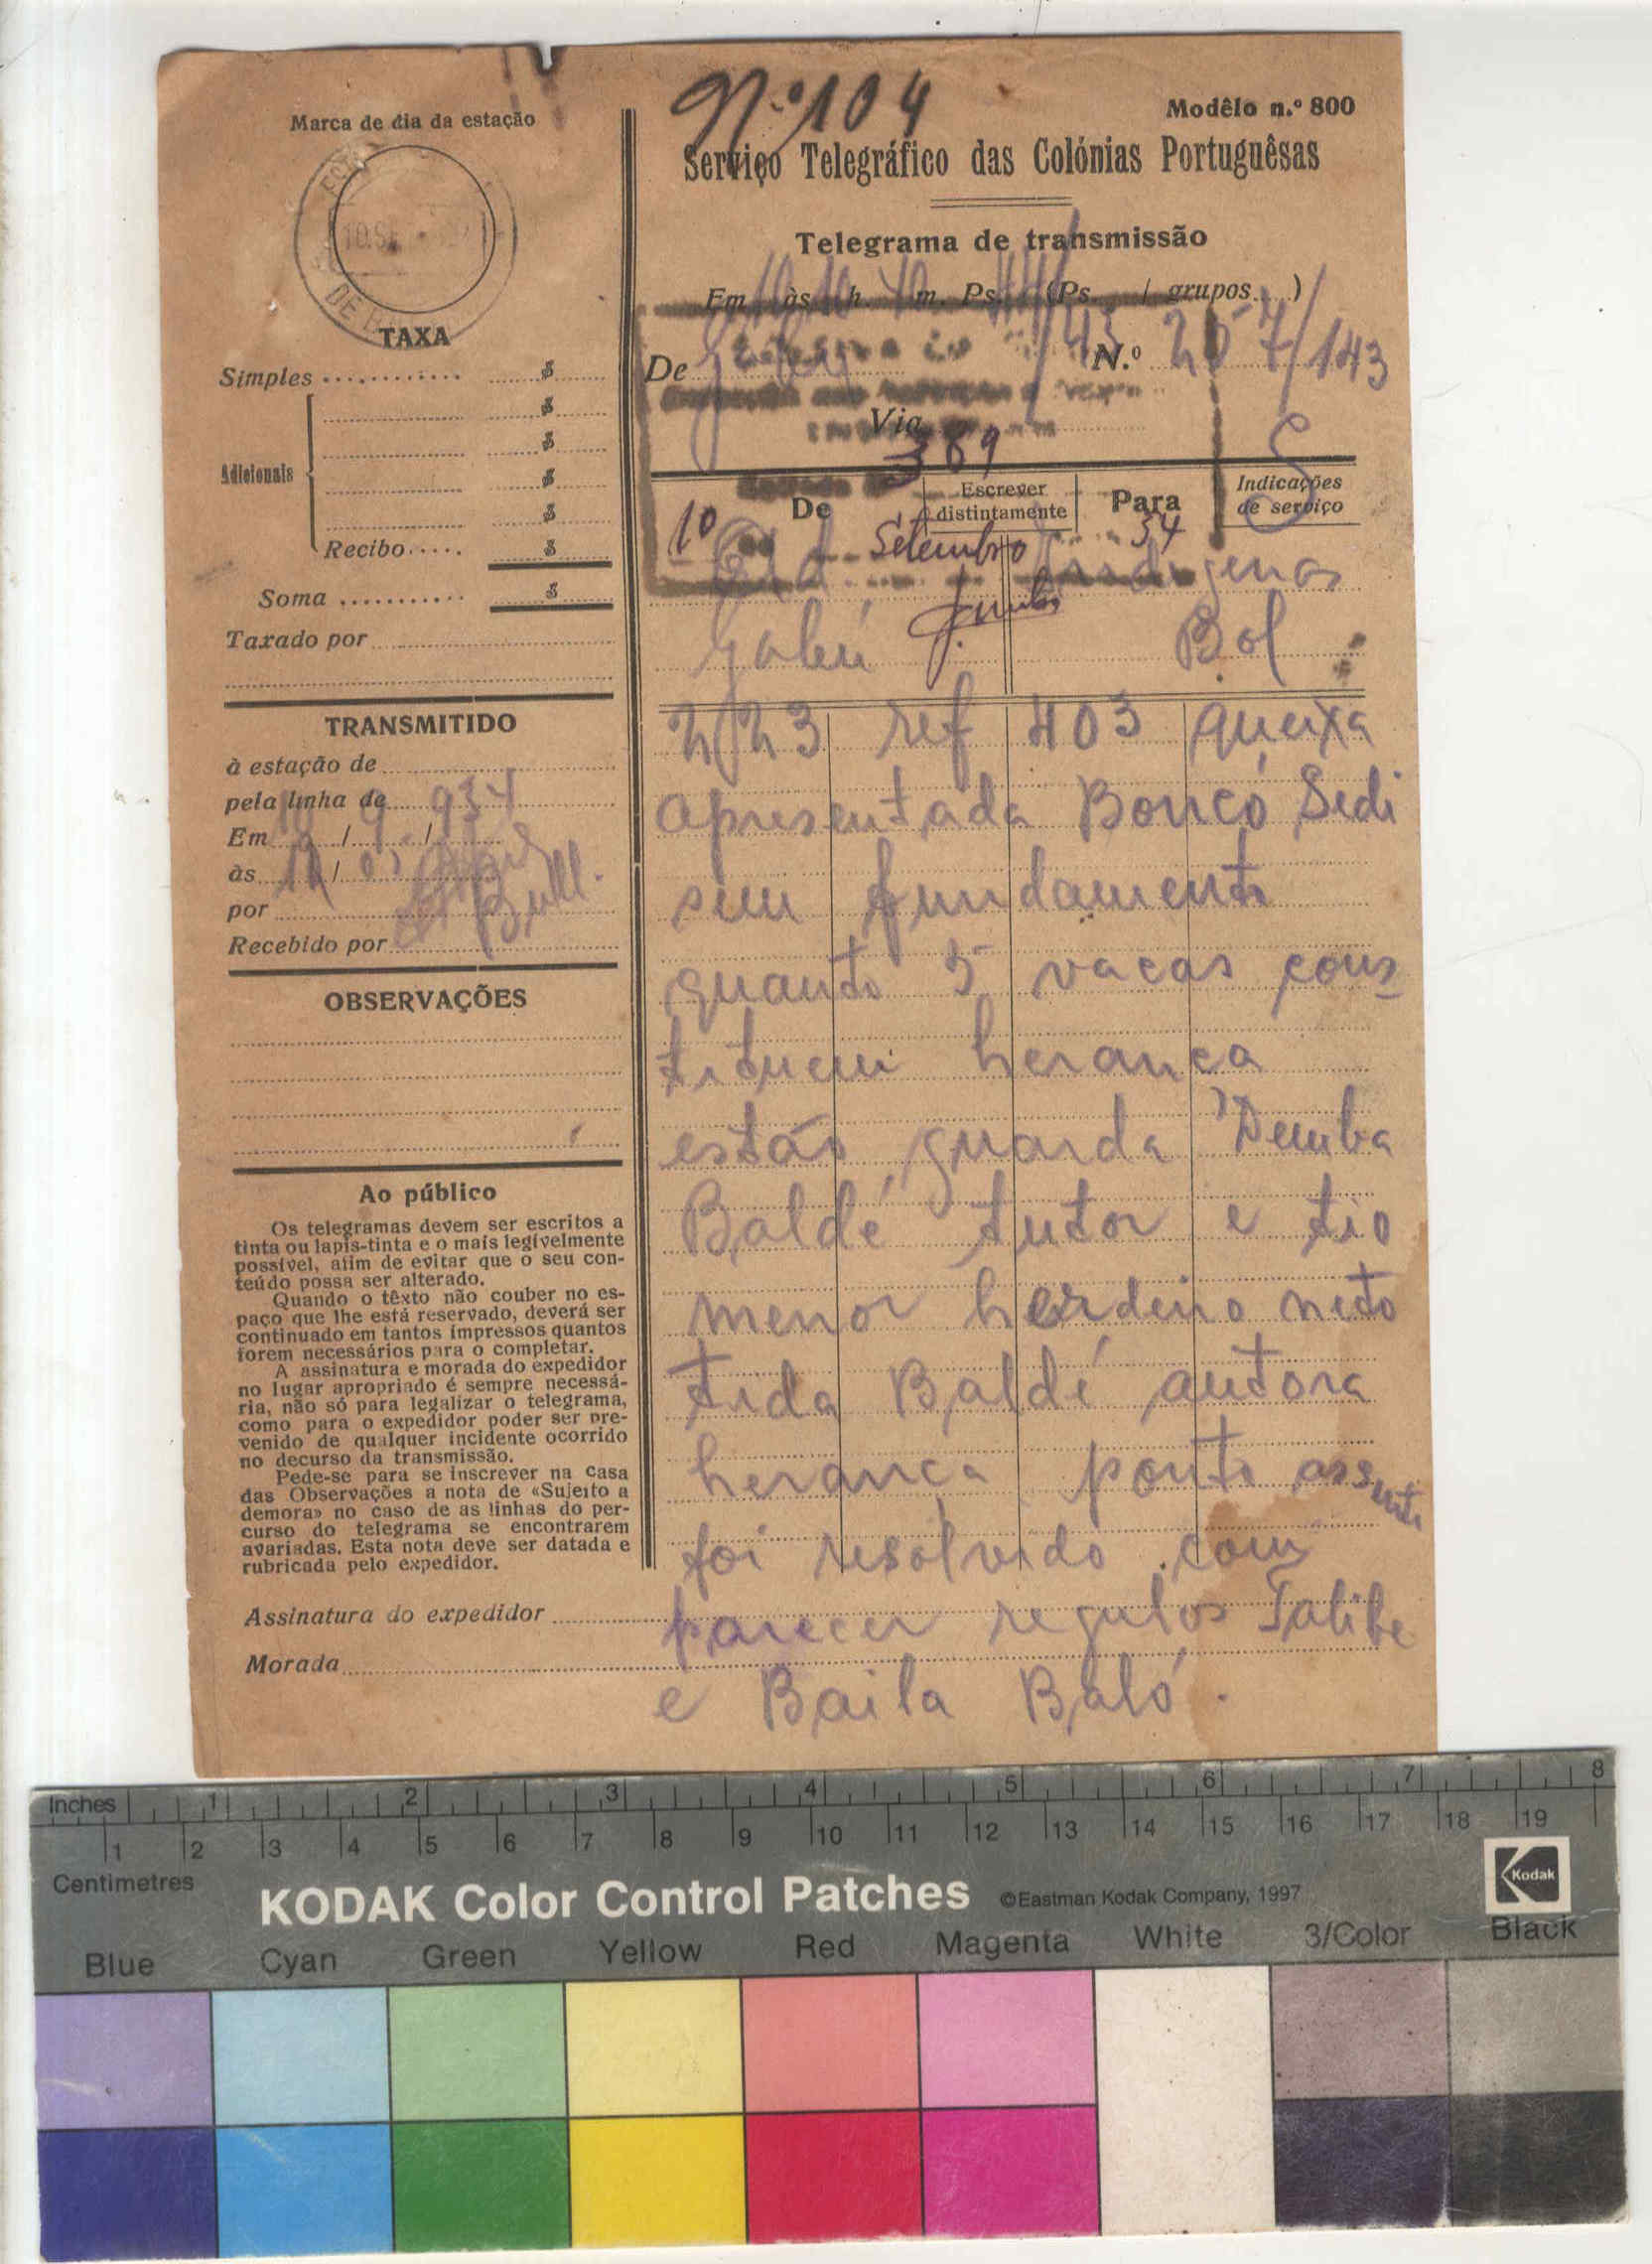 Nº 104
Modêlo n.º 800
Marca de dia da estação
Serviço Telegráfico das Colónias Portuguêsas
Telegrama de transmissão
Em às h. m. Ps. (Ps. / grupos )
De Gabú N.º 257/143
Via
389
DE B
TAXA
Simples $
$
$
Adicionais
$
$
Recibo $
Soma $
Taxado por
De
Escrever distintamente
Para
Indicações de serviço
10 Setembro 34
Indigenas
Gabú Bol
TRANSMITIDO
à estação de
pela linha de
Em 10 / 9 / 934
às
por
Recebido por Bull.
OBSERVAÇÕES
2/23 ref 403 queixa
apresentada Boncó Sedi
sem fundamento
quanto 5 vacas cons
tituem herança
estás guarda Demba
Baldé tutor e tio
menor herdeiro neto
Tida Baldé autora
herança ponto assunto
foi resolvido com
parecer regulos Talibe
e Baila Baló.
Ao público
Os telegramas devem ser escritos a
tinta ou lapis-tinta e o mais legivelmente
possível, afim de evitar que o seu con-
teúdo possa ser alterado.
Quando o têxto não couber no es-
paço que lhe está reservado, deverá ser
continuado em tantos impressos quantos
forem necessários para o completar.
A assinatura e morada do expedidor
no lugar apropriado é sempre necessá-
ria, não só para legalizar o telegrama,
como para o expedidor poder ser pre-
venido de qualquer incidente ocorrido
no decurso da transmissão.
Pede-se para se inscrever na casa
das Observações a nota de «Sujeito a
demora» no caso de as linhas do per-
curso do telegrama se encontrarem
avariadas. Esta nota deve ser datada e
rubricada pelo expedidor.
Assinatura do expedidor
Morada
Inches 1 2 3 4 5 6 7 8
1 2 3 4 5 6 7 8 9 10 11 12 13 14 15 16 17 18 19
Centimetres
KODAK Color Control Patches ©Eastman Kodak Company, 1997 Kodak
Blue Cyan Green Yellow Red Magenta White 3/Color Black